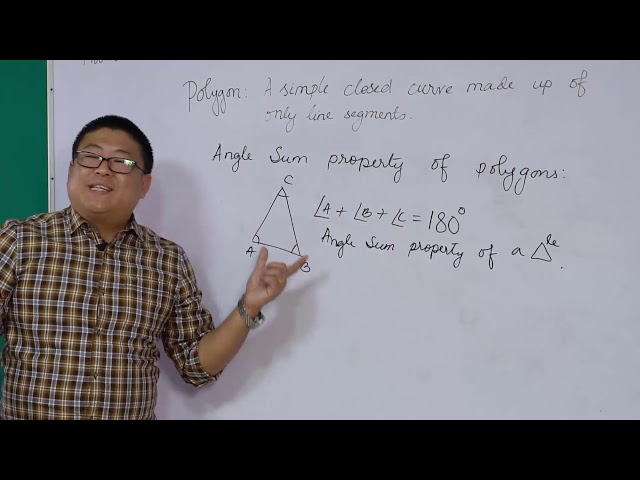 Polygon: A simple closed curve made up of
only line segments.
Angle Sum property of polygons:
C
∠A + ∠B + ∠C = 180°
Angle Sum property of a △le.
A
B